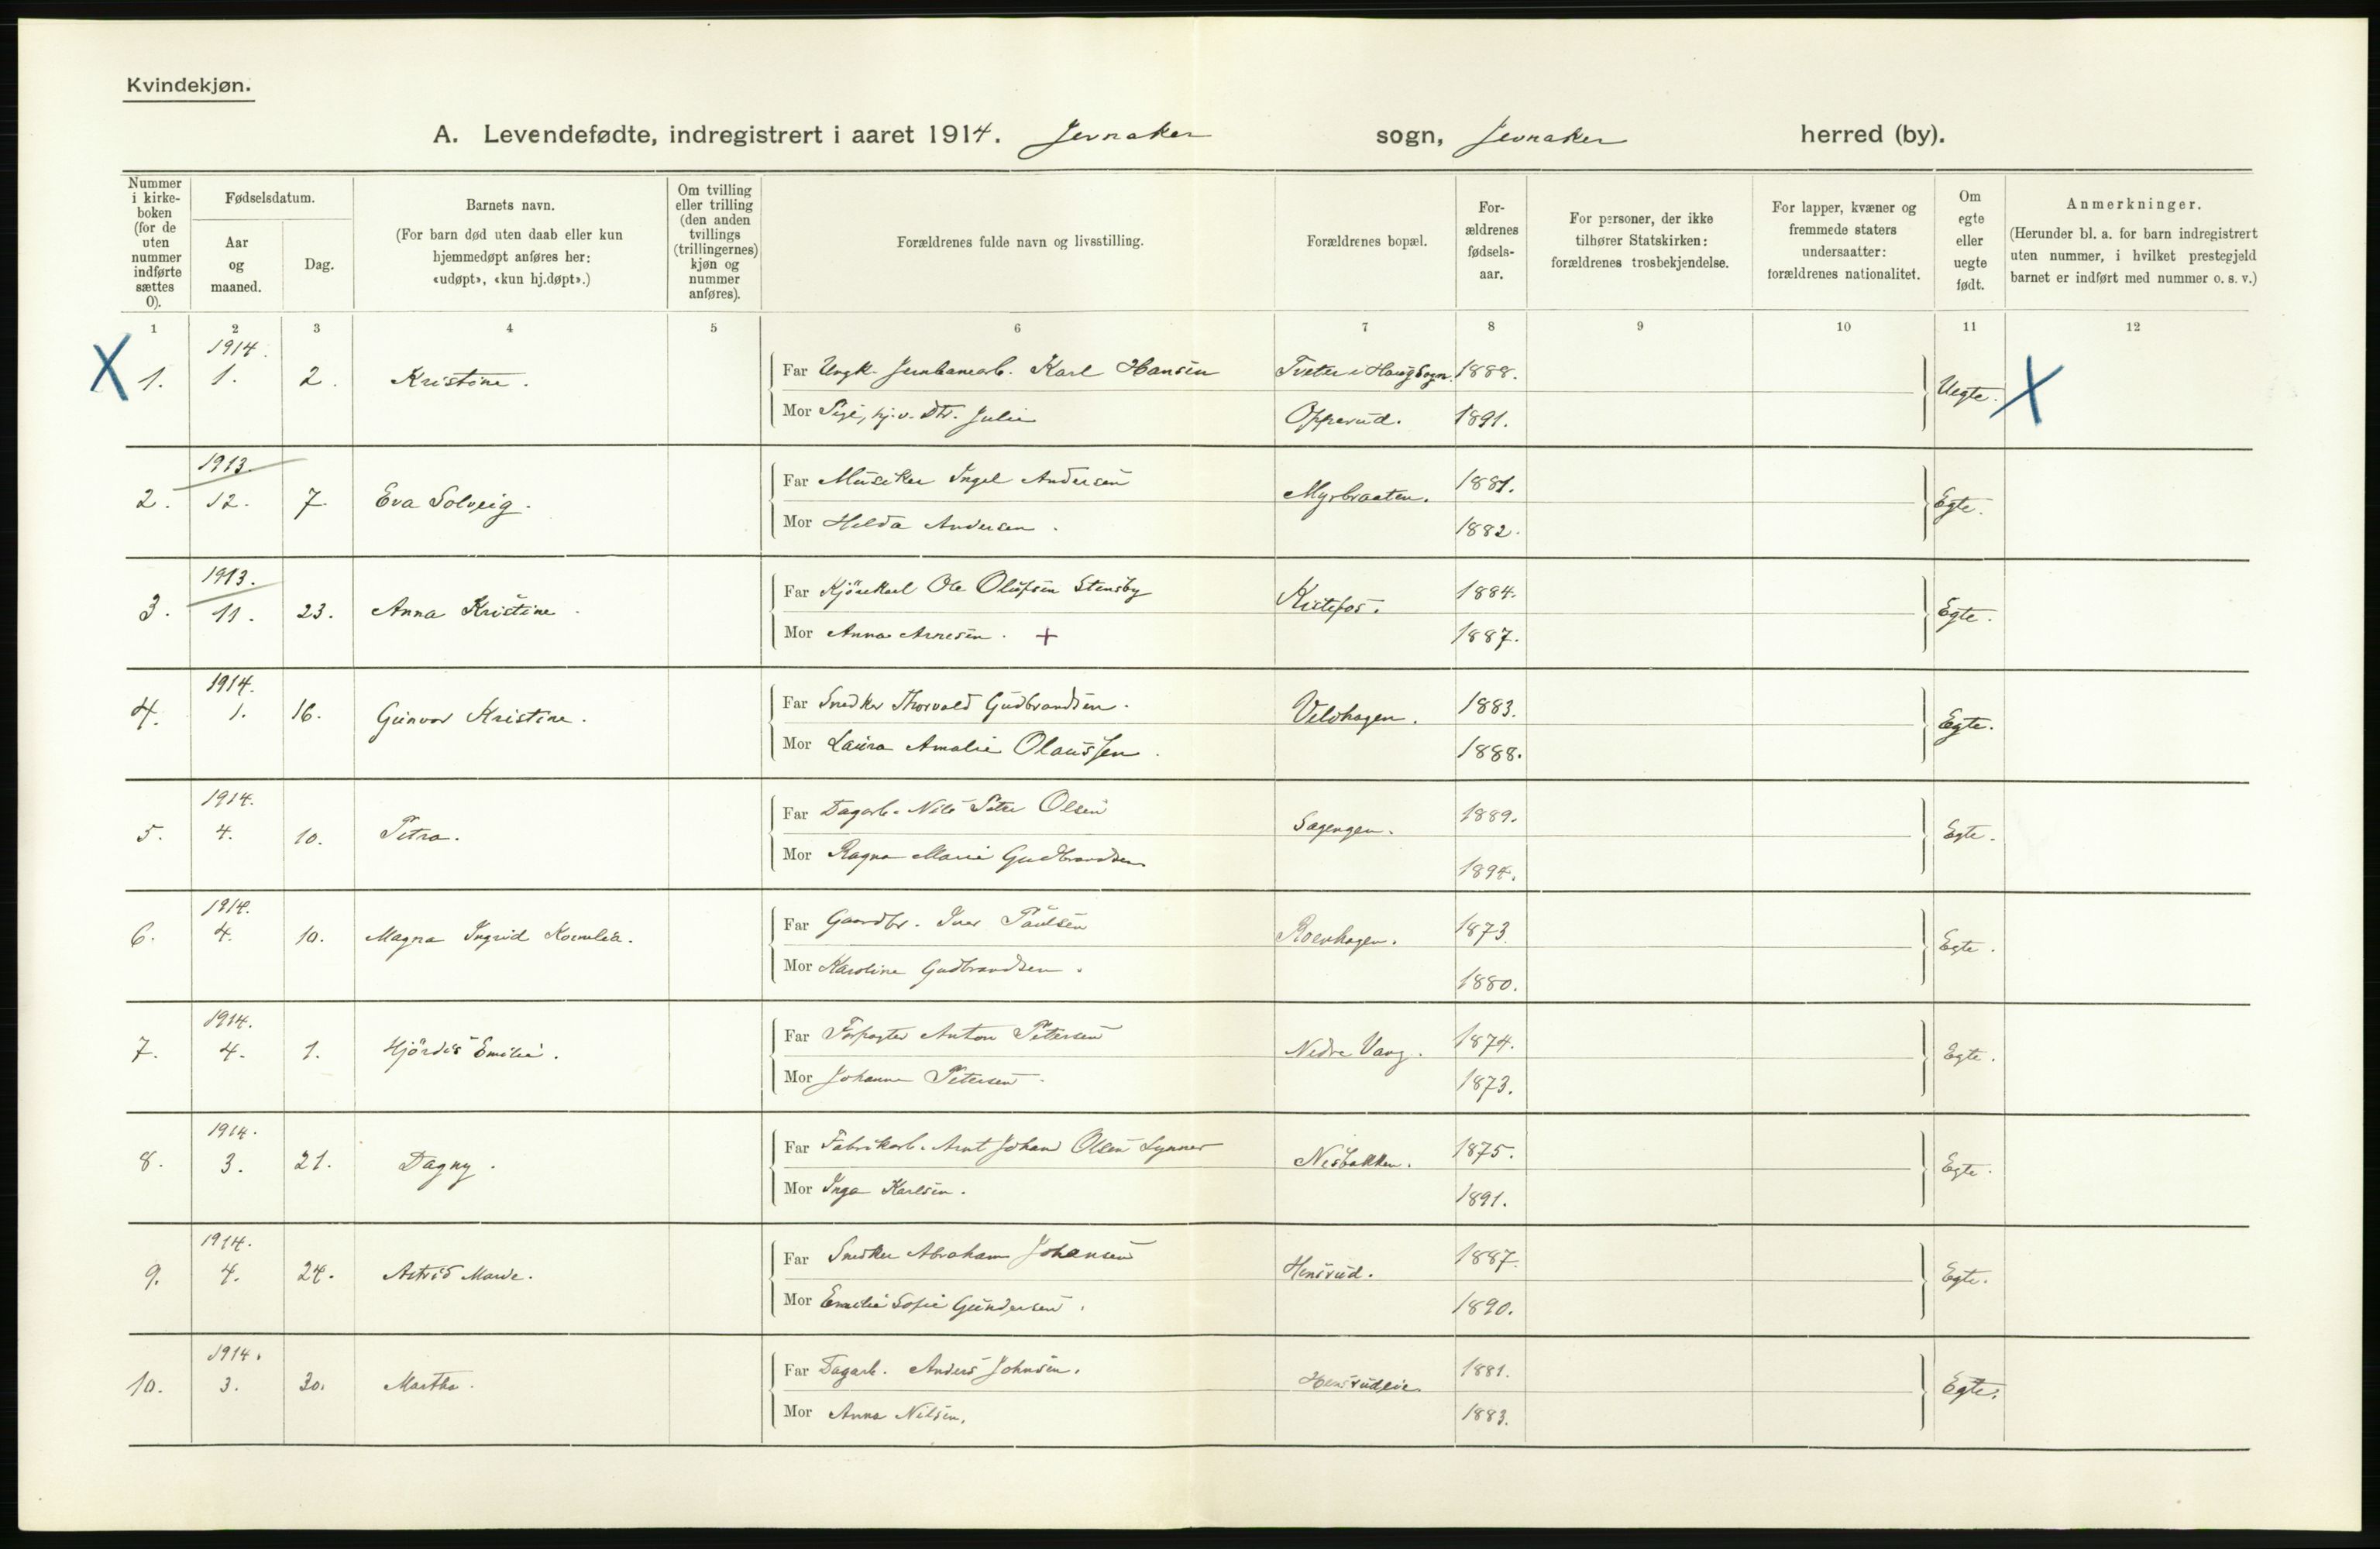 Kvindekjøn.
A. Levendefødte, indregistrert i aaret 1914. Jevnaker sogn, Jevnaker herred (by).
Nummer i kirke-boken (for de uten nummer indførte sættes 0).
Fødselsdatum.
Aar og maaned.
Dag.
Barnets navn.
(For barn død uten daab eller kun hjemmedøpt anføres her: «udøpt», «kun hj.døpt».)
Om tvilling eller trilling (den anden tvillings (trillingernes) kjøn og nummer anføres).
Forældrenes fulde navn og livsstilling.
Forældrenes bopæl.
For-ældrenes fødsels-aar.
For personer, der ikke tilhører Statskirken: forældrenes trosbekjendelse.
For lapper, kvæner og fremmede staters undersaatter: forældrenes nationalitet.
Om egte eller uegte født.
Anmerkninger.
(Herunder bl. a. for barn indregistrert uten nummer, i hvilket prestegjeld barnet er indført med nummer o. s. v.)
1 2 3 4 5 6 7 8 9 10 11 12
X 1. 1914. 1. 2. Kristine. Far Ungk. Jernbanearb. Karl Hansen Tveter i Haug Sogn. 1888. Uegte. X
Mor Pige, hj.v. Dtr. Julie Opperud. 1891.
2. 1913. 12. 7. Eva Solveig. Far Musiker Ingel Andersen Myrbraaten. 1881. Egte.
Mor Hilda Andersen. 1882.
3. 1913. 11. 23. Anna Kristine. Far Kjørekarl Ole Olufsen Stensby Kistefos. 1884. Egte.
Mor Anna Arnesen. + 1887.
4. 1914. 1. 16. Gunvor Kristine. Far Snedker Thorvald Gudbrandsen. Veldhagen. 1883. Egte.
Mor Laura Amalie Olaussen. 1888.
5. 1914. 4. 10. Petra. Far Dagarb. Nils Peter Olsen Sagengen. 1889. Egte.
Mor Ragna Marie Gudbrandsen 1894.
6. 1914. 4. 10. Magna Ingrid Kornelia. Far Gaardbr. Iver Paulsen Roenhagen. 1873. Egte.
Mor Karoline Gudbrandsen. 1880.
7. 1914. 4. 1. Hjördis Emilie. Far Forpagter Anton Petersen Nedre Vang. 1874. Egte.
Mor Johanne Petersen. 1873.
8. 1914. 3. 21. Dagny. Far Fabrikarb. Arnt Johan Olsen Lynner Nesbakken. 1875. Egte.
Mor Inga Karlsen. 1891.
9. 1914. 4. 24. Astrid Marie. Far Snedker Abraham Johansen Hensrud. 1887. Egte.
Mor Emilie Sofie Gundersen. 1890.
10. 1914. 3. 30. Martha. Far Dagarb. Anders Johnsen. Hensrudeie. 1881. Egte.
Mor Anna Nilsen. 1883.